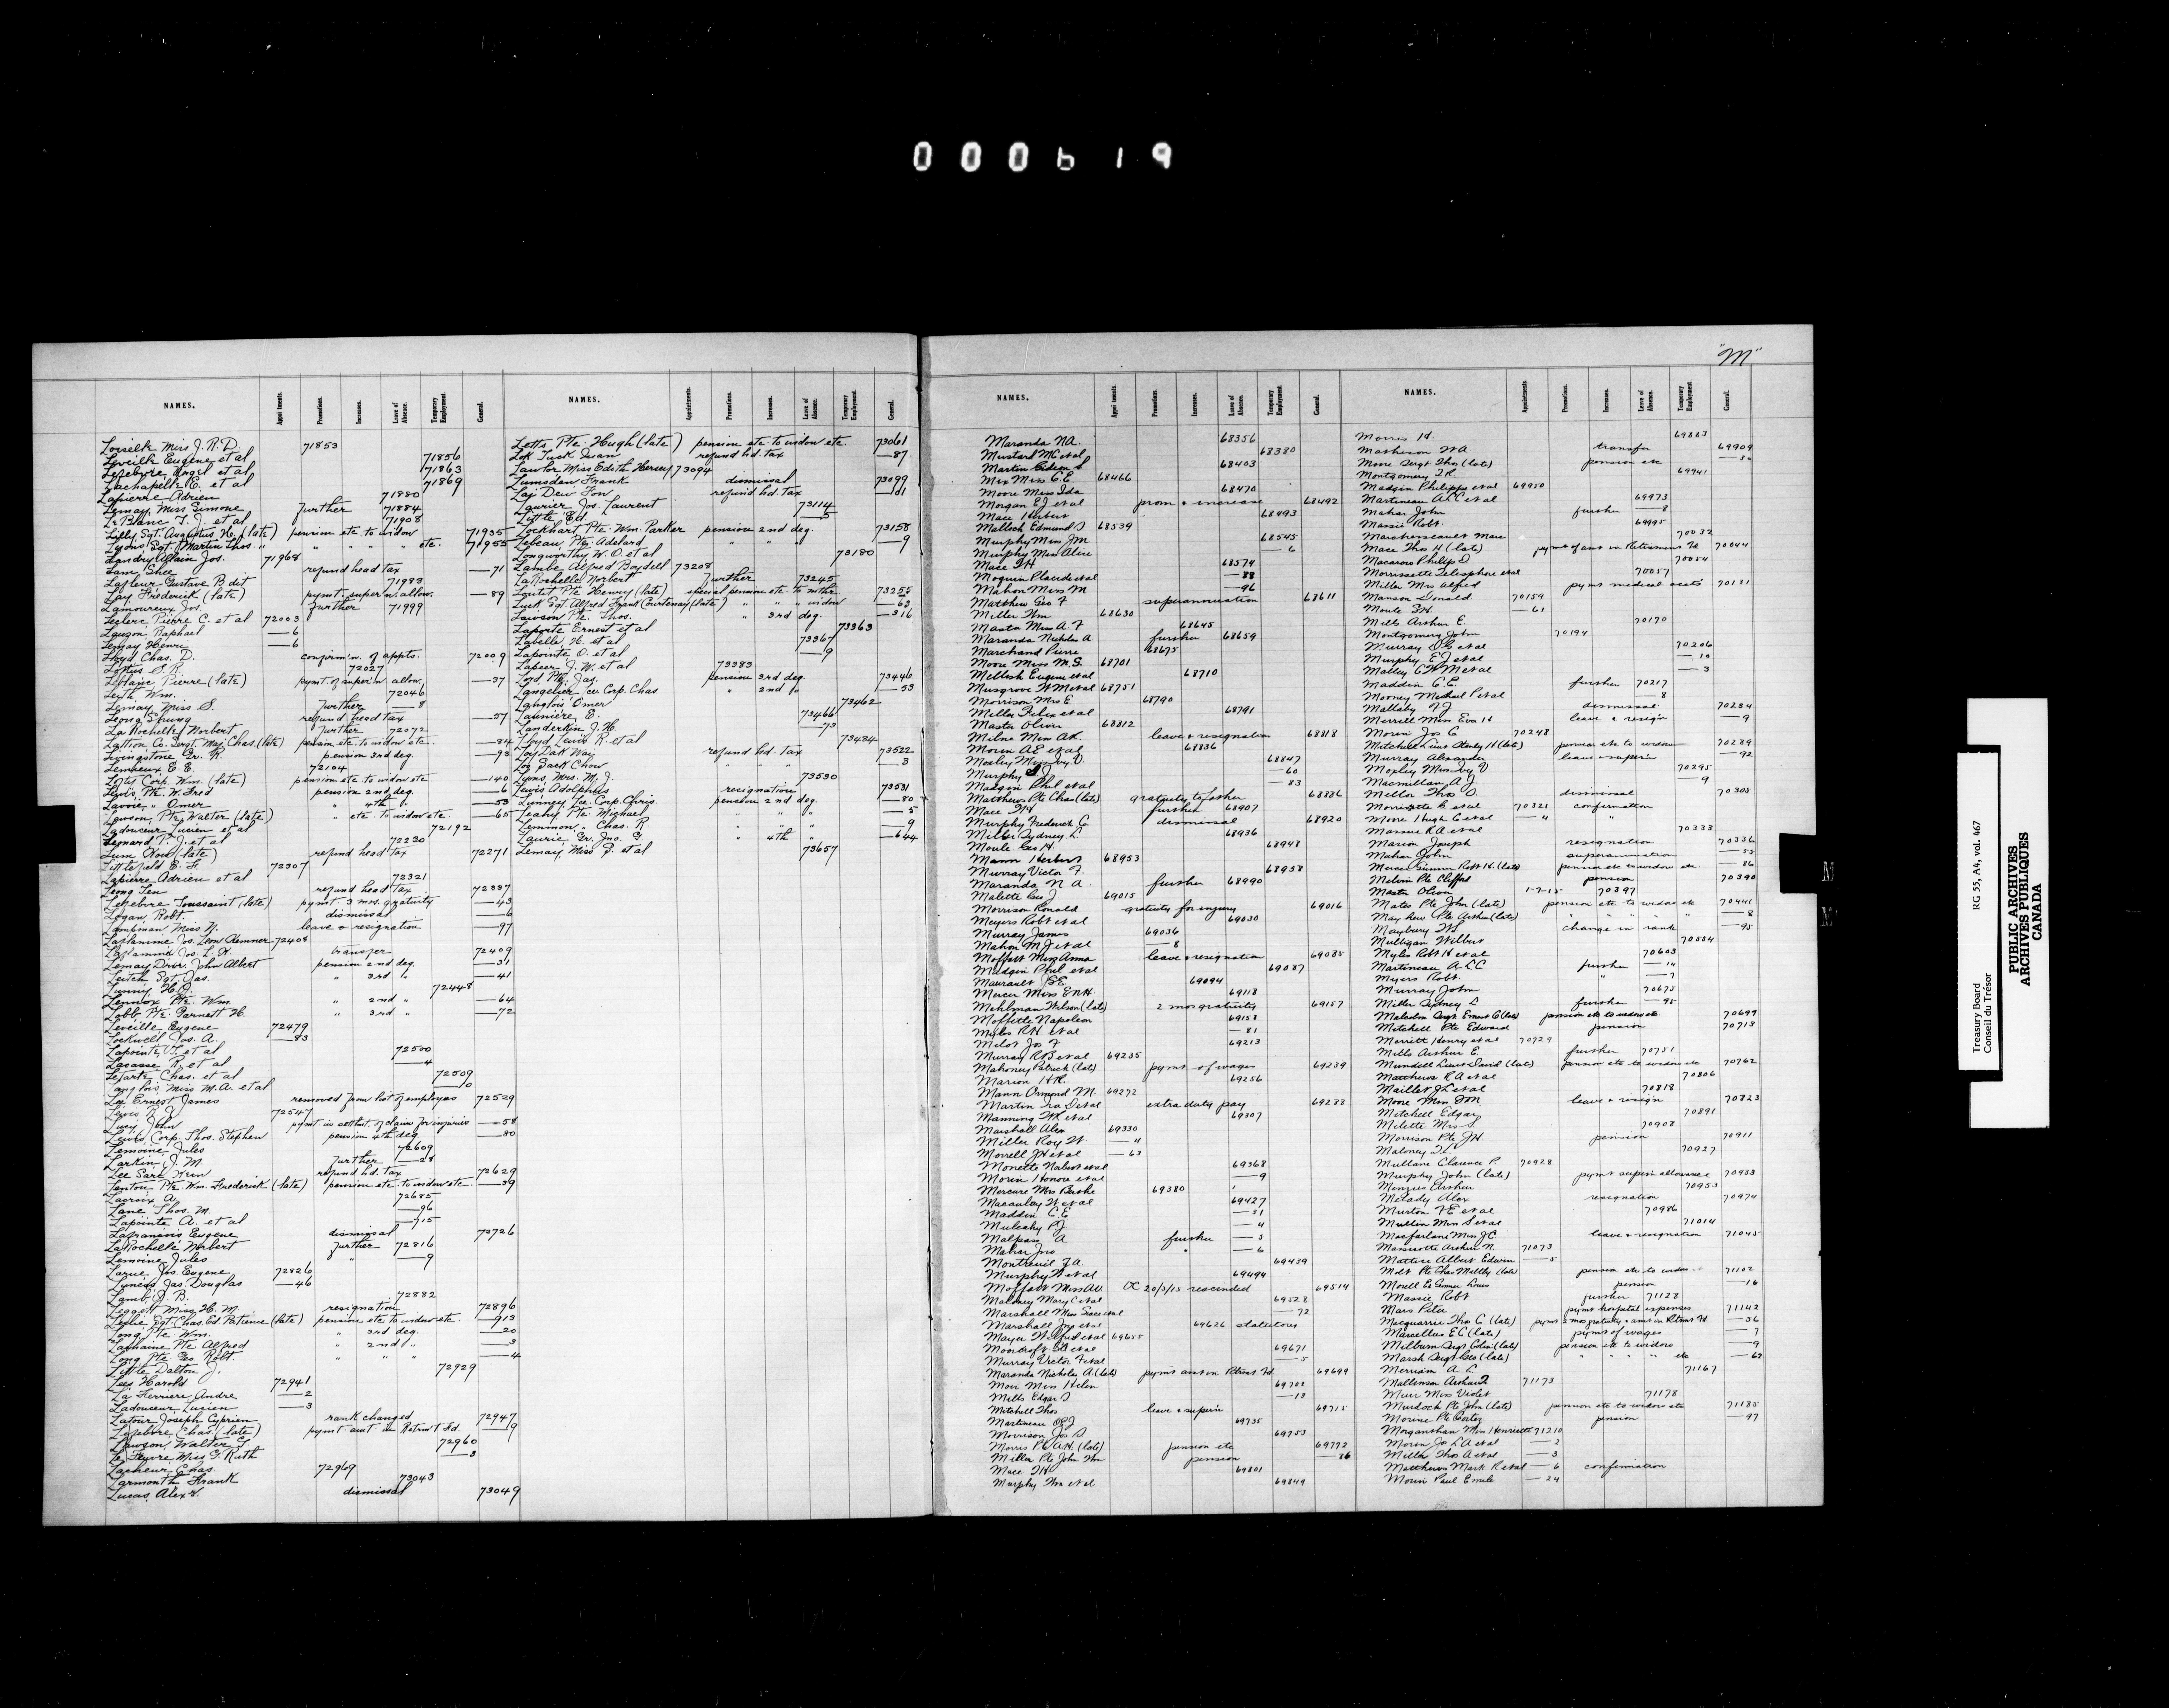 000619
"M"
NAMES. Appointments. Promotions. Increases. Leave of Absence. Temporary Employment. General. NAMES. Appointments. Promotions. Increases. Leave of Absence. Temporary Employment. General.
Loiselle Miss J. R. D. 71853
Leveille Eugene et al 71856
Lefebvre Angel et al 71863
Lachapelle E. et al 71869
Lapierre Adrien 71880
Lemay, Miss Simone further 71884
LeBlanc T. J. et al 71908
Lilly Sgt. Augustus H. (late) pension etc. to widow 71935
Lyons Sgt. Martin Thos. " " " " " etc. 71955
Landry Allain Jos. 71968
Lam Shee refund head tax —71
Lafleur Gustave B dit 71983
Lay Frederick (late) pymt super'n. allow. —89
Lamoureux Jos. further 71999
Leclerc Pierre C. et al 72003
Lauzon Raphael —6
Lemay Henri —6
Lloyd Chas. D. confirm'n. of appts. 72009
Loftus S. R. 72027
Leblanc Pierre (late) pymt of super'n allow. —37
Leith Wm. 72046
Lemay Miss S. further —8
Leong Sprung refund head tax —57
La Rochelle Norbert further 72072
Lattion Co. Sergt. Maj. Chas. (late) pension etc. to widow etc. —84
Livingstone Gr. R. pension 3rd deg. —93
Lemieux E. E. 72104
Lofts Corp. Wm. (late) pension etc. to widow etc —140
Lewis, Pte. W. Fred pension 2nd deg. —6
Lavoie, " Omer " 4th " —53
Lawson, Pte. Walter (late) " etc. to widow etc. —65
Ladouceur Lucien et al 72192
Leonard P. J. et al 72230
Lum How (late) refund head tax 72271
Littlefield E. F. 72307
Lapierre Adrien et al 72321
Leong Ten refund head tax 72337
Lefebvre Toussaint (late) pymt. 3 mos. gratuity —43
Logan, Robt. dismissal —6
Lampman Miss N. leave & resignation —97
Laflamme Jos. Leon Kemner 72408
Laflamme Jos. L. K. transfer 72409
Lemay Drvr. John Albert pension 2nd deg. —31
Leitch Sgt. Jas. " 3rd " —41
Lunny H. J. 72448
Lennox Pte. Wm. " 2nd " —64
Lobb Pte. Garnett H. " 3rd " —72
Leveille Eugene 72479
Lockwell Jos. A. —83
Lapointe J. et al 72500
Lacasse R. et al —4
Lefarte Chas. et al 72509
Langlois Miss M. A. et al —10
Lee Ernest James removed from list of employes 72529
Lyons R. J. 72547
Lucy John pymt in settlmt. of claim for injuries —58
Lewis, Corp. Thos. Stephen pension 4th deg. —80
Lemoine Jules 72609
Larkin J. M. further —28
Lee Sara Kuen refund hd. tax 72629
Lenton Pte. Wm. Frederick (late) pension etc. to widow etc. —39
Lacroix A. 72685
Lane Thos. M. —96
Lapointe A. et al —715
Lafrancois Eugene dismissal 72726
La Rochelle Norbert further 72816
Lemoine Jules " —9
Larue Jos. Eugene 72826
Lyness Jas. Douglas —46
Lamb J. B. 72882
Leggett Miss H. M. resignation 72896
Leslie Sgt. Chas. Ed. Patience (late) pension etc to widow etc. —913
Long Pte. Wm. " 3rd deg. —20
Lachaine Pte Alfred " 2nd " —3
Long Pte. Geo. Robt. " " " —4
Little Dalton J. 72929
Lees Harold 72941
La Ferriere Andre —2
Ladouceur Lucien —3
Latour Joseph Cyprien rank changed 72947
Lefebvre Chas. (late) pymt amt in Retrmt Fd. —9
Lawson, Walter G. 72960
Le Feyre Miss G. Ruth —3
Lacheur Chas. 72969
Larmonth Frank 73043
Lucas, Alex S. dismissal 73049
Letts Pte. Hugh (late) pension etc. to widow etc. 73061
Lok Tuck Suan refund hd. tax —87
Lawlor Miss Edith Hersey 73094
Lumsden Frank dismissal 73099
Lay Dew Fon refund hd. tax —101
Laurier Jos. Laurent 73114
Little Ed. —5
Lockhart Pte. Wm. Parker pension 2nd deg. 73158
Lebeau, Pte. Adelard " " " —9
Longworthy W. O. et al 73180
Lambe Alfred Boydell 73208
La Rochelle Norbert further 73245
Loutet Pte. Henry (late) special pension etc. to mother 73255
Luck Sgt. Alfred Frank Courtenay (late) " " " widow —63
Lawson Pte. Thos. " 3rd deg. —316
Laporte Ernest et al 73363
Labelle, H. et al 73367
Lapointe O. et al —9
Lapeer J. W. et al 73383
Lord Pte. Jas. pension 3rd deg. 73446
Langelier Lce Corp. Chas " 2nd " —53
Langlois Omer 73462
Launiere E. 73466
Landerkin J. H. —73
Lloyd Lewis R. et al 73484
Loy Dak Way refund hd. tax 73522
Loo Sack Chow " " " —3
Lyons, Mrs. M. J. 73530
Lewis Adolphus resignation 73531
Lunney Lce. Corp. Chris. pension 2nd deg. —80
Leahy Pte. Michael " " " —5
Lemmon " Chas. R " " " —9
Laurie Gr. Jno. G. " 4th " —644
Lemay, Miss S. et al 73657
NAMES. Appointments. Promotions. Increases. Leave of Absence. Temporary Employment. General. NAMES. Appointments. Promotions. Increases. Leave of Absence. Temporary Employment. General.
Maranda N. A. 68356
Mustard M C et al 68380
Martin Edson L 68403
Mix Miss C. E. 68466
Moore Miss Ida 68470
Morgan E J et al prom & increase 68492
Mace Herbert 68493
Malloch Edmund S 68539
Murphy Miss J M 68545
Murphy Miss Alice —6
Mace T H 68574
Moquin Placide et al —88
Mahon Miss M —96
Matthew Geo F superannuation 68611
Miller Wm 68630
Masta Miss A. F 68645
Maranda Nicholas A further 68659
Marchand Pierre 68675
Moore Miss M. S. 68701
Mellosh Eugene et al 68710
Musgrove W M et al 68751
Morrison Mrs E. 68790
Miller Felix et al 68791
Master Oliver 68812
Milne Miss A K leave & resignation 68818
Morin A E et al 68836
Moxley Miss Ivy V. 68847
Murphy J —60
Madgin Phil et al —83
Matthews Pte Chas (late) gratuity to father 68886
Mace T H further 68907
Murphy Frederick C dismissal 68920
Miller Sydney L. 68936
Moule Geo H. 68948
Mann Herbert 68953
Murray Victor F. 68958
Maranda N A. further 68990
Malette Geo J 69015
Morrison Ronald gratuity for injury 69016
Meyers Robt et al 69030
Murray James 69036
Mahon M J et al —8
Moffatt Miss Anna leave & resignation 69085
Madgin Phil et al 69087
Maurault J E. 69094
Mercer Miss E N H. 69118
Mehlman Wilson (late) 2 mos gratuity 69157
Moffette Napoleon 69158
Myles R H et al —81
Milot Jos F 69213
Murray R B et al 69235
Mahoney Patrick (late) pymt of wages 69239
Marion H R. 69256
Mann Ormond M. 69272
Martin Ira D et al extra duty pay 69288
Manning W K et al 69307
Marshall Alex 69330
Miller Roy W —"
Morrell J H et al —63
Monette Norbert et al 69368
Morin Honore et al —9
Mercure Mrs Berthe 69380
Macaulay W et al 69427
Madden C. E —31
Mulcahy P J —"
Malpass A further —3
Mahar Jno " —6
Montreuil J A. 69439
Murphy W et al 69494
Moffatt Miss A W OC 20/3/15 rescinded 69514
Maloney Mary C et al 69528
Marshall Miss Grace et al —72
Marshall Jno et al 69626 statutory
Mayer Wilfrid et al 69655
Moncroft Geo et al 69671
Murray Victor F et al —5
Maranda Nicholas A (late) pymt amt in Rtrmt Fd 69699
Moir Miss Helen 69702
Mills Edgar S —13
Mitchell Thos leave & super'n 69715
Martineau O E J 69735
Morrison Jos S 69753
Morris Pte A H (late) pension etc 69772
Miller Pte John Wm pension —86
Mace T H 69801
Murphy Wm et al 69849
Morris H. 69883
Matheson W A transfer 69909
Moore Sergt Thos (late) pension etc
Montgomery F R. 69941
Madgin Philippe et al 69950
Martineau A L C et al 69973
Mahar John further —8
Massie Robt. 69995
70032
Mace Thos H (late) pymt of amt in Retirement Fd 70044
Macaroro Philip S 70054
Morrissette Telesphore et al 70057
Miller Mrs Alfred pymt medical accts 70131
Manson Donald 70159
Moule E H. —61
Mills Arthur E. 70170
Montgomery John 70194
Murray D C et al 70206
Murphy E J et al —10
Matley C W M et al —3
Madden C. E. further 70217
Mooney Michael P et al —8
Mallaby F J dismissal 70234
Merrill Miss Eva H leave & resig'n —9
Morin Jos C 70248
Mitchell Lieut Stanley H (late) pension etc to widow 70289
Murray Alexander leave & super'n —92
Moxley Miss Ivy V 70295
Macmillan A J —9
Mellor Thos O. dismissal 70305
Morrissette C et al 70321 confirmation
Moore Hugh C et al —" "
Massue R A et al 70333
Marion Joseph resignation 70336
Mahar John superannuation —55
Mercer Gunner Robt H. (late) pension etc to widow etc. —86
Melvin Pte Clifford pension 70390
Master Oliver 1-7-15 70397
Mates Pte John (late) pension etc to widow etc 70441
May hew Pte Arthur (late) " " " " " —8
Maybury W J change in rank —95
Mulligan Wilbur 70554
Myles Robt H et al 70603
Martineau A L C further —14
Myers Robt. " —7
Murray John 70675
Miller Sydney L further —95
Malcolm Sergt Ernest G (late) pension etc to widow etc 70699
Mitchell Pte Edward pension 70713
Merritt Henry et al 70729
Mills Arthur E. further 70751
Mundell Lieut David (late) pension etc to widow etc 70762
Matthews R A et al 70806
Maillet J L et al 70818
Moore Miss F M leave & resig'n 70823
Mitchell Edgar 70891
Milette Mrs S 70908
Morrison Pte J H. pension 70911
Maloney T L. 70927
Mullane Clarence P. 70928
Murphy John (late) pymt super'n allowance 70933
Menzies Arthur 70953
Melady Alex resignation 70974
Murton F E et al 70986
Mullin Miss S et al 71014
Macfarlane Miss J C leave & resignation 71045
Massicotte Arthur N. 71073
Mattice Albert Edwin —5
Molt Pte Chas Meltby (late) pension etc to widow 71102
Morell Ed Gunner Louis pension —16
Massie Robt further 71128
Mars Peter pymt hospital expenses 71142
Macquarrie Thos C. (late) pymt 2 mos gratuity & amt in Rtrmt Fd —36
Marcellus E C (late) pymt of wages —7
Milburn Sergt Edwin (late) pension etc to widow —9
Marsh Sergt Geo (late) " " " " etc —62
Merriam A L 71167
Mallinson Arthur 71173
Muir Miss Violet 71178
Murdoch Pte John (late) pension etc to widow etc 71185
Morine Pte Cortez pension —97
Morganthan Miss Henriette 71210
Morin Jos L A et al —2
Miller Thos A et al —3
Matthews Mark R et al —6 confirmation
Morin Paul Emile —24
Treasury Board RG 55, A4, vol. 467
Conseil du Trésor
PUBLIC ARCHIVES
ARCHIVES PUBLIQUES
CANADA